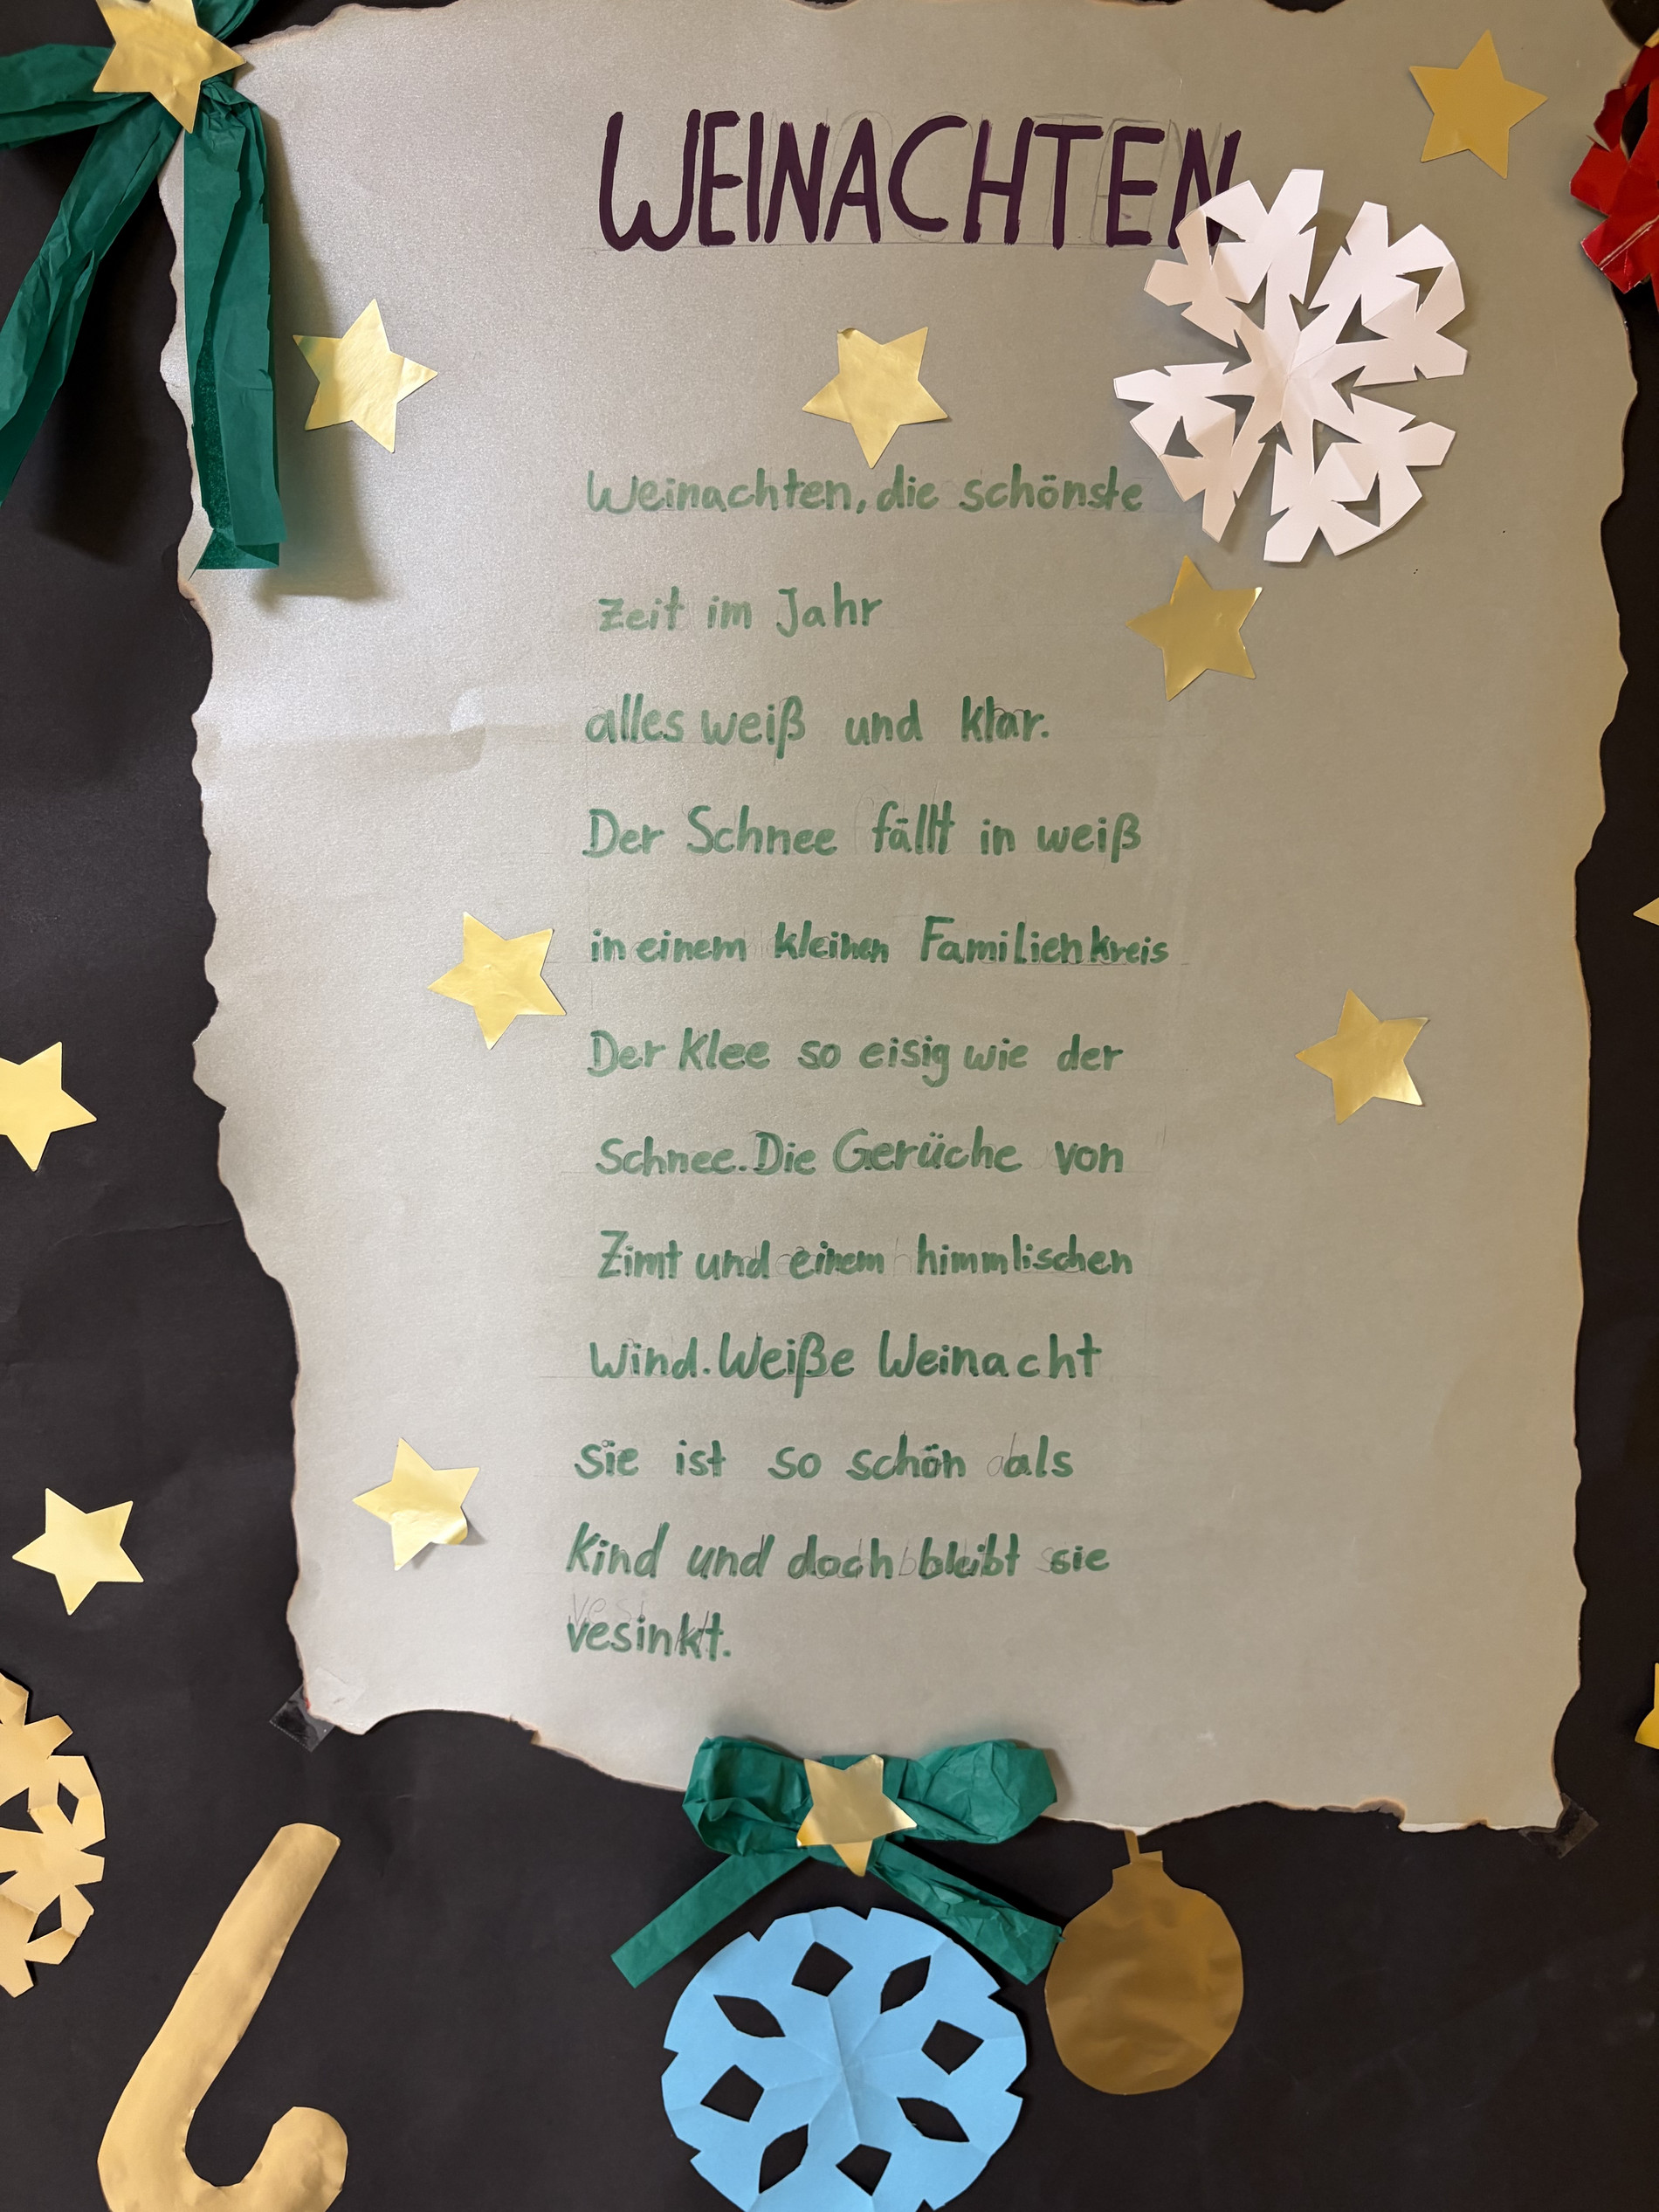 WEINACHTEN
Weinachten, die schönste
Zeit im Jahr
alles weiß und klar.
Der Schnee fällt in weiß
in einem kleinen Familienkreis
Der Klee so eisig wie der
Schnee. Die Gerüche von
Zimt und einem himmlischen
Wind. Weiße Weinacht
sie ist so schön als
Kind und doch bleibt sie
vesinkt.